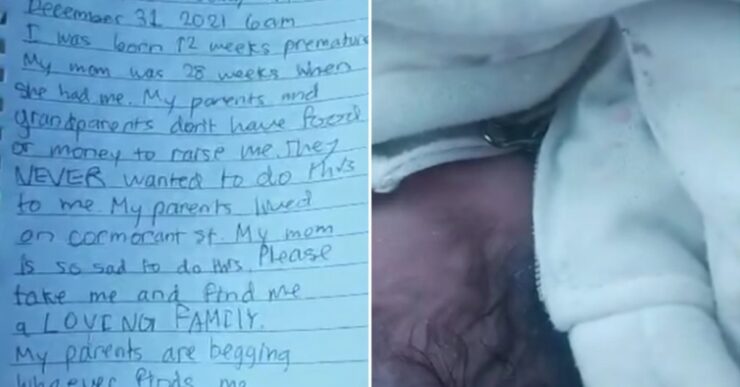 December 31 2021 6am
I was born 12 weeks premature
My mom was 28 weeks when
she had me. My parents and
grandparents dont have food
or money to raise me. They
NEVER wanted to do this
to me. My parents lived
on cormorant st. My mom
is so sad to do this. Please
take me and find me
a LOVING FAMILY.
My parents are begging
whoever finds me